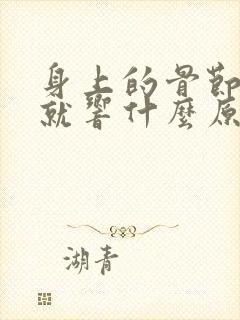 身上的骨節
就響什麼原
湖青